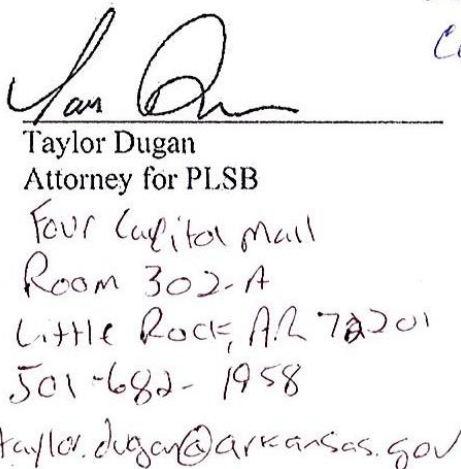 Taylor Dugan
Attorney for PLSB
Four Capitol Mall
Room 302-A
Little Rock, AR 72201
501-682-1958
taylor.dugan@arkansas.gov